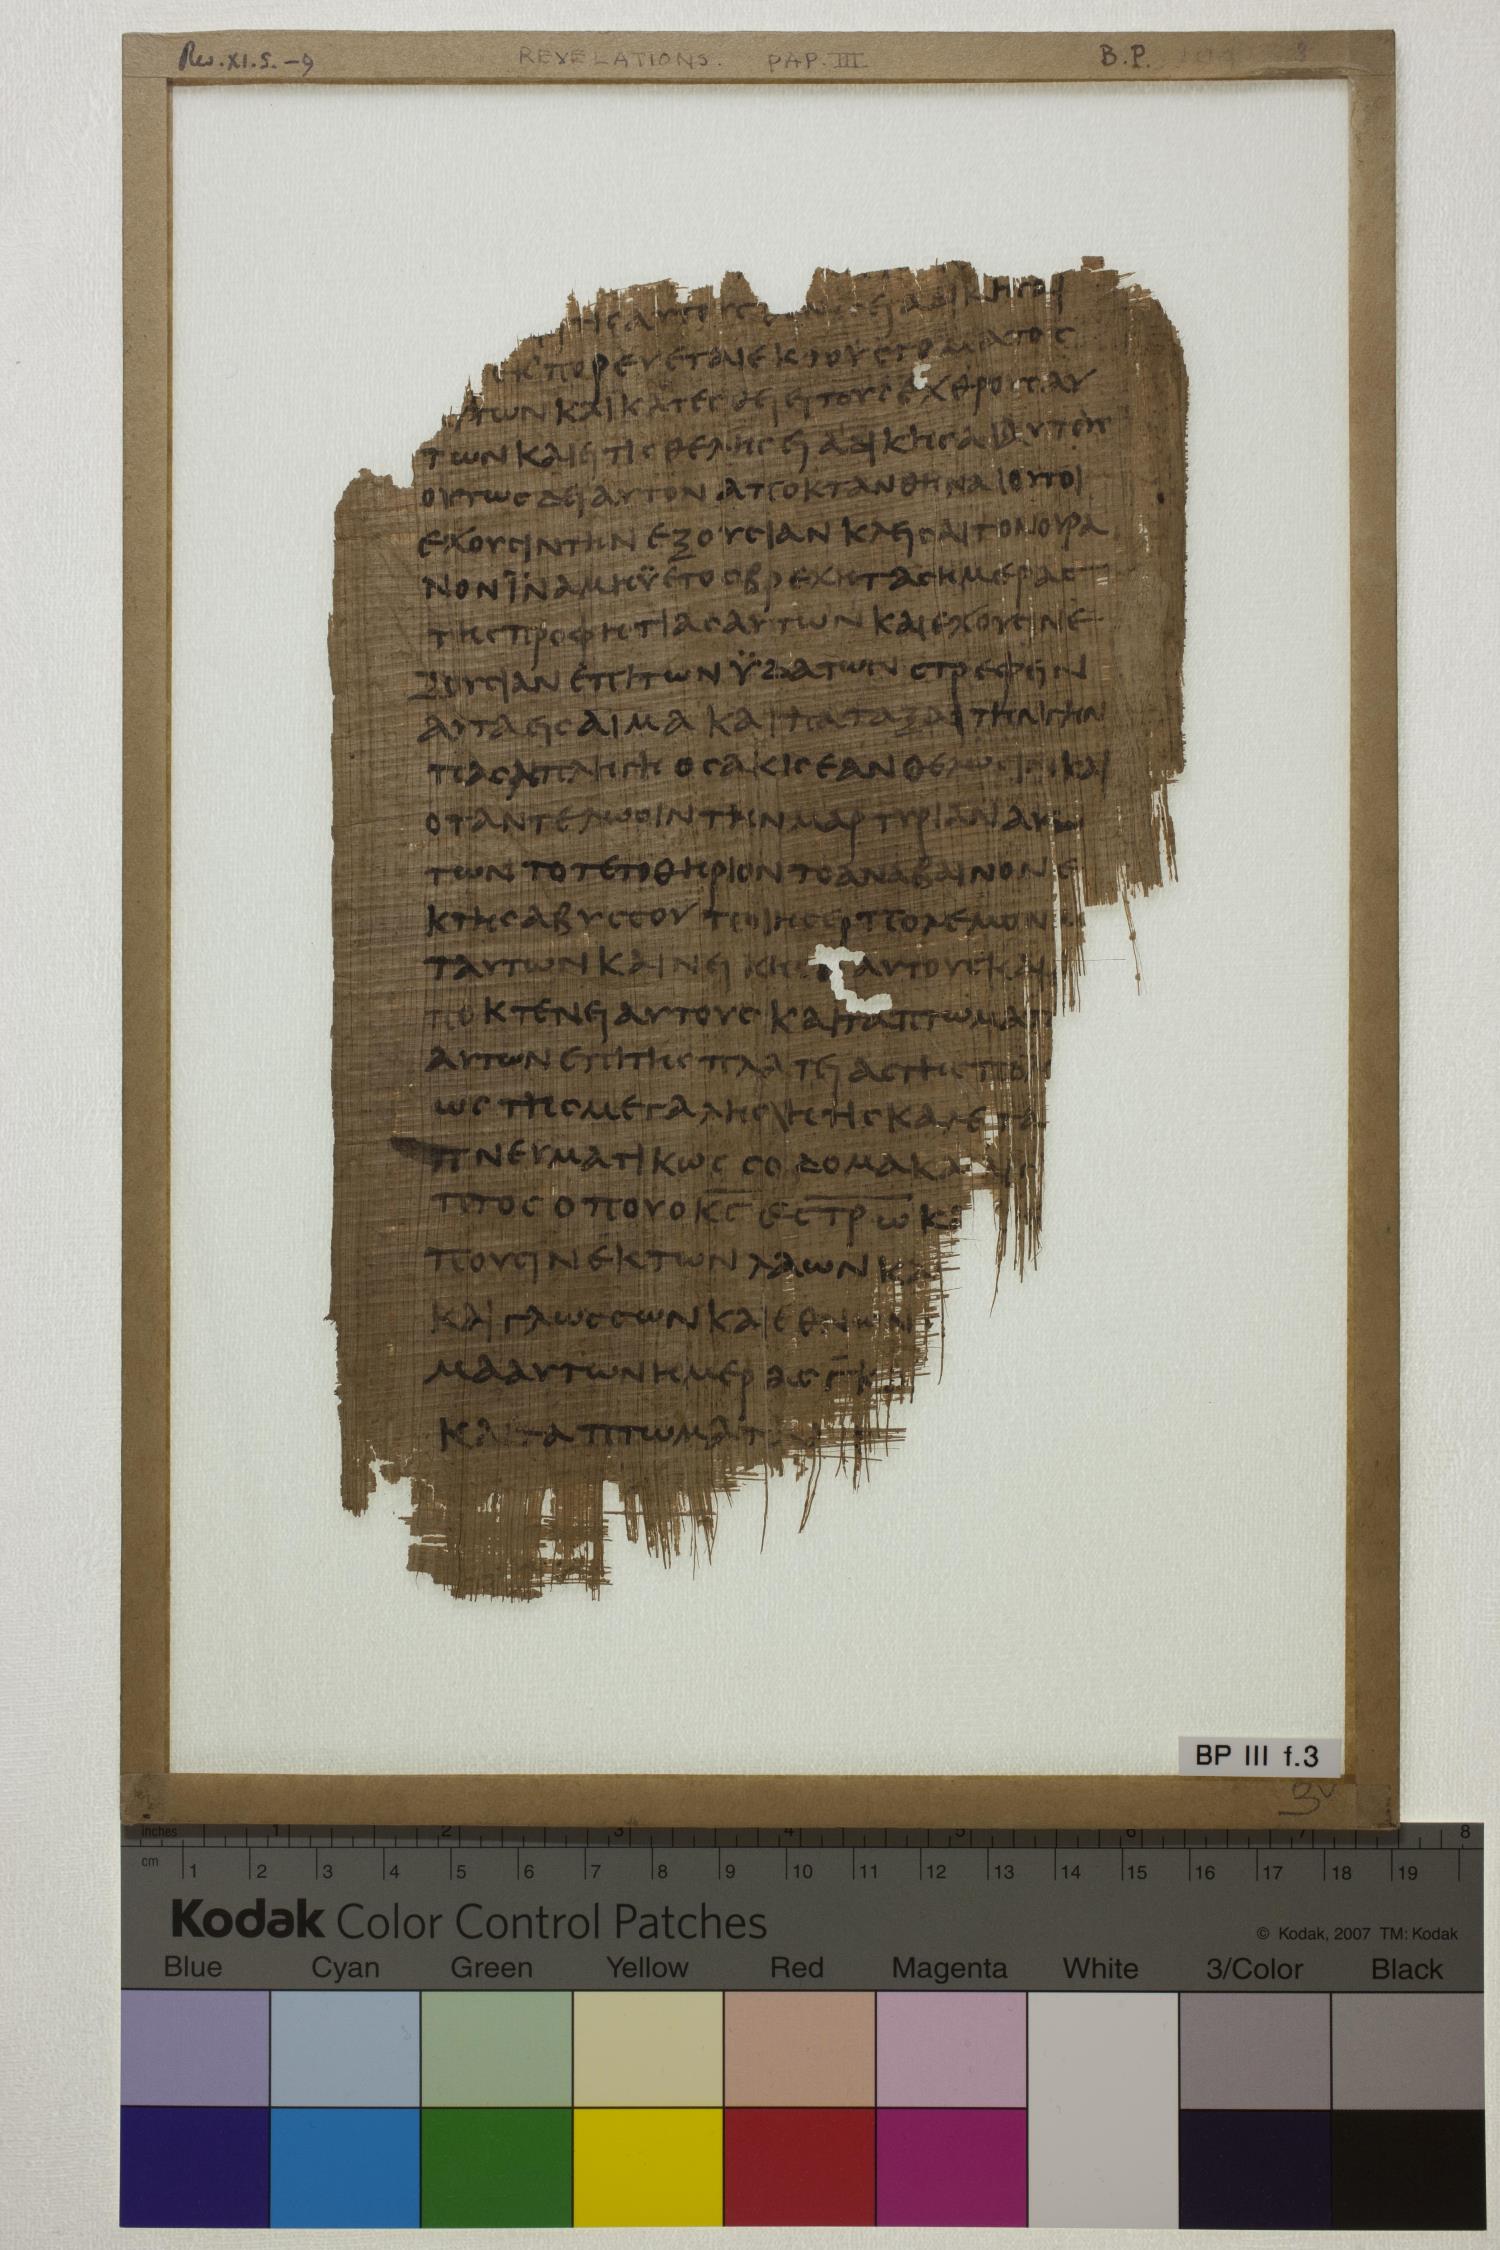 Rev. XI. 5. – 9 REVELATIONS. PAP. III B.P. 3
ΑΥΤΟΥΣ ΑΔΙΚΗΣΑΙ
ΕΚΠΟΡΕΥΕΤΑΙ ΕΚ ΤΟΥ ΣΤΟΜΑΤΟΣ
ΑΥΤΩΝ ΚΑΙ ΚΑΤΕΣΘΕΙΕΙ ΤΟΥΣ ΕΧΘΡΟΥΣ ΑΥ
ΤΩΝ ΚΑΙ ΕΙ ΤΙΣ ΘΕΛΗΣΕΙ ΑΔΙΚΗΣΑΙ ΑΥΤΟΥΣ
ΟΥΤΩΣ ΔΕΙ ΑΥΤΟΝ ΑΠΟΚΤΑΝΘΗΝΑΙ ΟΥΤΟΙ
ΕΧΟΥΣΙΝ ΤΗΝ ΕΞΟΥΣΙΑΝ ΚΛΕΙΣΑΙ ΤΟΝ ΟΥΡΑ
ΝΟΝ ΪΝΑ ΜΗ ΫΕΤΟΣ ΒΡΕΧΗ ΤΑΣ ΗΜΕΡΑΣ
ΤΗΣ ΠΡΟΦΗΤΙΑΣ ΑΥΤΩΝ ΚΑΙ ΕΧΟΥΣΙΝ Ε
ΞΟΥΣΙΑΝ ΕΠΙ ΤΩΝ ΫΔΑΤΩΝ ΣΤΡΕΦΕΙΝ
ΑΥΤΑ ΕΙΣ ΑΙΜΑ ΚΑΙ ΠΑΤΑΞΑΙ ΤΗΝ ΓΗΝ
ΠΑΣΑ ΠΛΗΓΗ ΟΣΑΚΙΣ ΕΑΝ ΘΕΛΩΣΙΝ ΚΑΙ
ΟΤΑΝ ΤΕΛΩΣΙΝ ΤΗΝ ΜΑΡΤΥΡΙΑΝ ΑΥ
ΤΩΝ ΤΟΤΕ ΤΟ ΘΗΡΙΟΝ ΤΟ ΑΝΑΒΑΙΝΟΝ Ε
Κ ΤΗΣ ΑΒΥΣΣΟΥ ΠΟΙΗΣΕΙ ΠΟΛΕΜΟΝ Μ
Τ ΑΥΤΩΝ ΚΑΙ ΝΕΙΚΗΣ ΑΥΤΟΥΣ ΚΑΙ
ΠΟΚΤΕΝΕΙ ΑΥΤΟΥΣ ΚΑΙ ΤΑ ΠΤΩΜΑΤ
ΑΥΤΩΝ ΕΠΙ ΤΗΣ ΠΛΑΤΕΙΑΣ ΤΗΣ ΠΟΛ
ΩΣ ΤΗΣ ΜΕΓΑΛΗΣ ΗΤΙΣ ΚΑΛΕΙΤΑΙ
ΠΝΕΥΜΑΤΙΚΩΣ ΣΟΔΟΜΑ ΚΑΙ ΑΙΓ
ΠΤΟΣ ΟΠΟΥ Ο Κ̅Σ̅ Ε̅Σ̅Τ̅Ρ̅Ω̅ ΚΑ
ΠΟΥΣΙΝ ΕΚ ΤΩΝ ΛΑΩΝ ΚΑ
ΚΑΙ ΓΛΩΣΣΩΝ ΚΑΙ ΕΘΝΩΝ
ΜΑ ΑΥΤΩΝ ΗΜΕΡΑΣ Γ̅ Κ
ΚΑΙ ΤΑ ΠΤΩΜΑΤ
BP III f.3
3v
inches 1 2 3 4 5 6 7 8
cm 1 2 3 4 5 6 7 8 9 10 11 12 13 14 15 16 17 18 19
Kodak Color Control Patches © Kodak, 2007 TM: Kodak
Blue Cyan Green Yellow Red Magenta White 3/Color Black